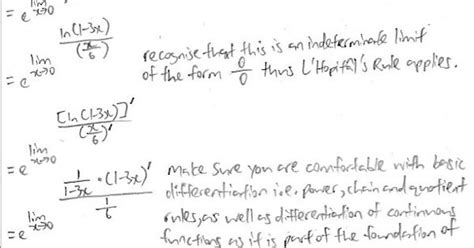 = e^{lim x→0}
= e^{lim x→0 ln(1-3x)/(x/6)} recognise that this is an indeterminate limit
of the form 0/0 thus L'Hopital's Rule applies.
= e^{lim x→0 [ln(1-3x)]'/(x/6)'}
= e^{lim x→0 (1/(1-3x) · (1-3x)')/(1/6)} make sure you are comfortable with basic
differentiation i.e. power, chain and quotient
rules, as well as differentiation of continuous
functions as it is part of the foundation of